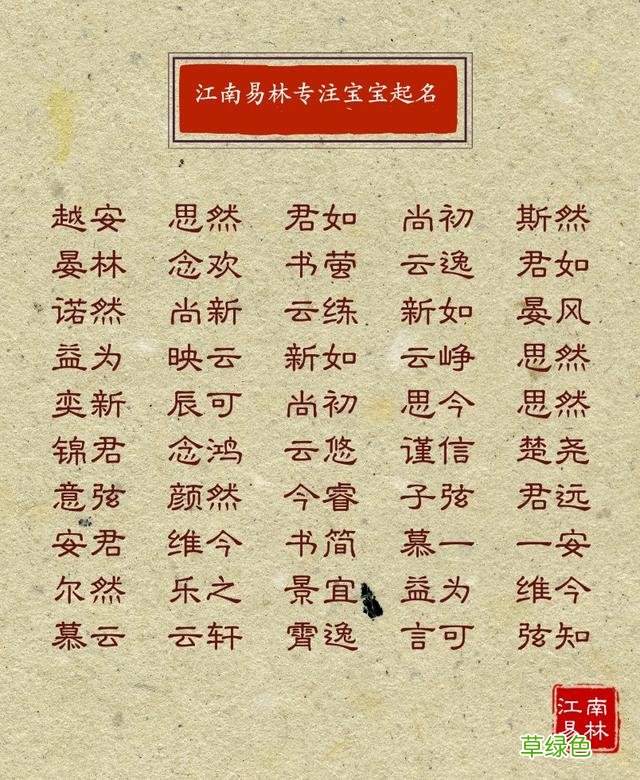 江南易林专注宝宝起名
越安 思然 君如 尚初 斯然
晏林 念欢 书萤 云逸 君如
诺然 尚新 云练 新如 晏风
益为 映云 新如 云峥 思然
奕新 辰可 尚初 思今 思然
锦君 念鸿 云悠 谨信 楚尧
意弦 颜然 今睿 子弦 君远
安君 维今 书简 慕一 一安
尔然 乐之 景宜 益为 维今
慕云 云轩 霄逸 言可 弦知
江南
易林
草绿色